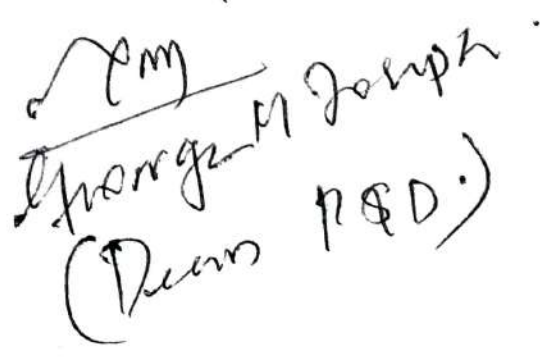 George M Joseph.
(Dean P&D.)